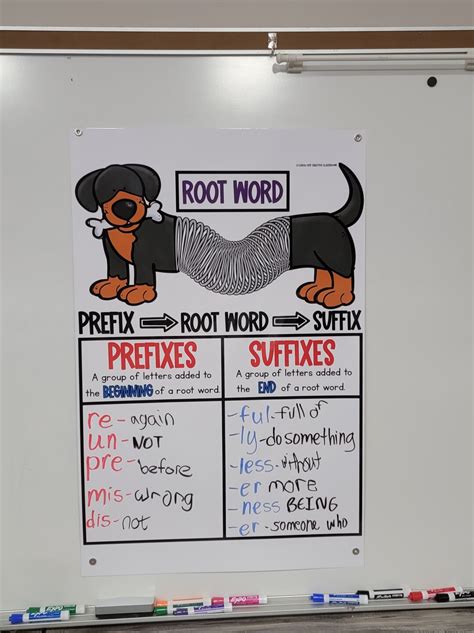 ROOT WORD
PREFIX ROOT WORD SUFFIX
PREFIXES
A group of letters added to
the BEGINNING of a root word.
re- again
un- NOT
pre- before
mis- wrong
dis- not
SUFFIXES
A group of letters added to
the END of a root word.
-ful- full of
-ly- do something
-less- without
-er more
-ness BEING
-er- someone who
EXPO